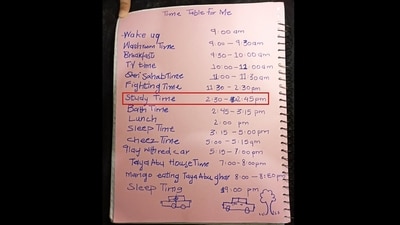 Time Table for Me
Wake up 9:00 am
Washroom Time 9:00 - 9:30am
Breakfast 9:30 - 10:00 am
TV time 10:00 - 11:00 am
Qari Sahab Time 11:00 - 11:30am
Fighting Time 11:30 - 2:30pm
Study Time 2:30 - 2:45pm
Bath Time 2:45 - 3:15 pm
Lunch 2:00 pm
Sleep Time 3:15 - 5:00 pm
cheez Time 5:00 - 5:15 pm
Play with red car 5:15 - 7:00 pm
Taya Abu House Time 7:00 - 8:00pm
mango eating Taya Abu ghar 8:00 - 8:30pm
Sleep Time 9:00 pm